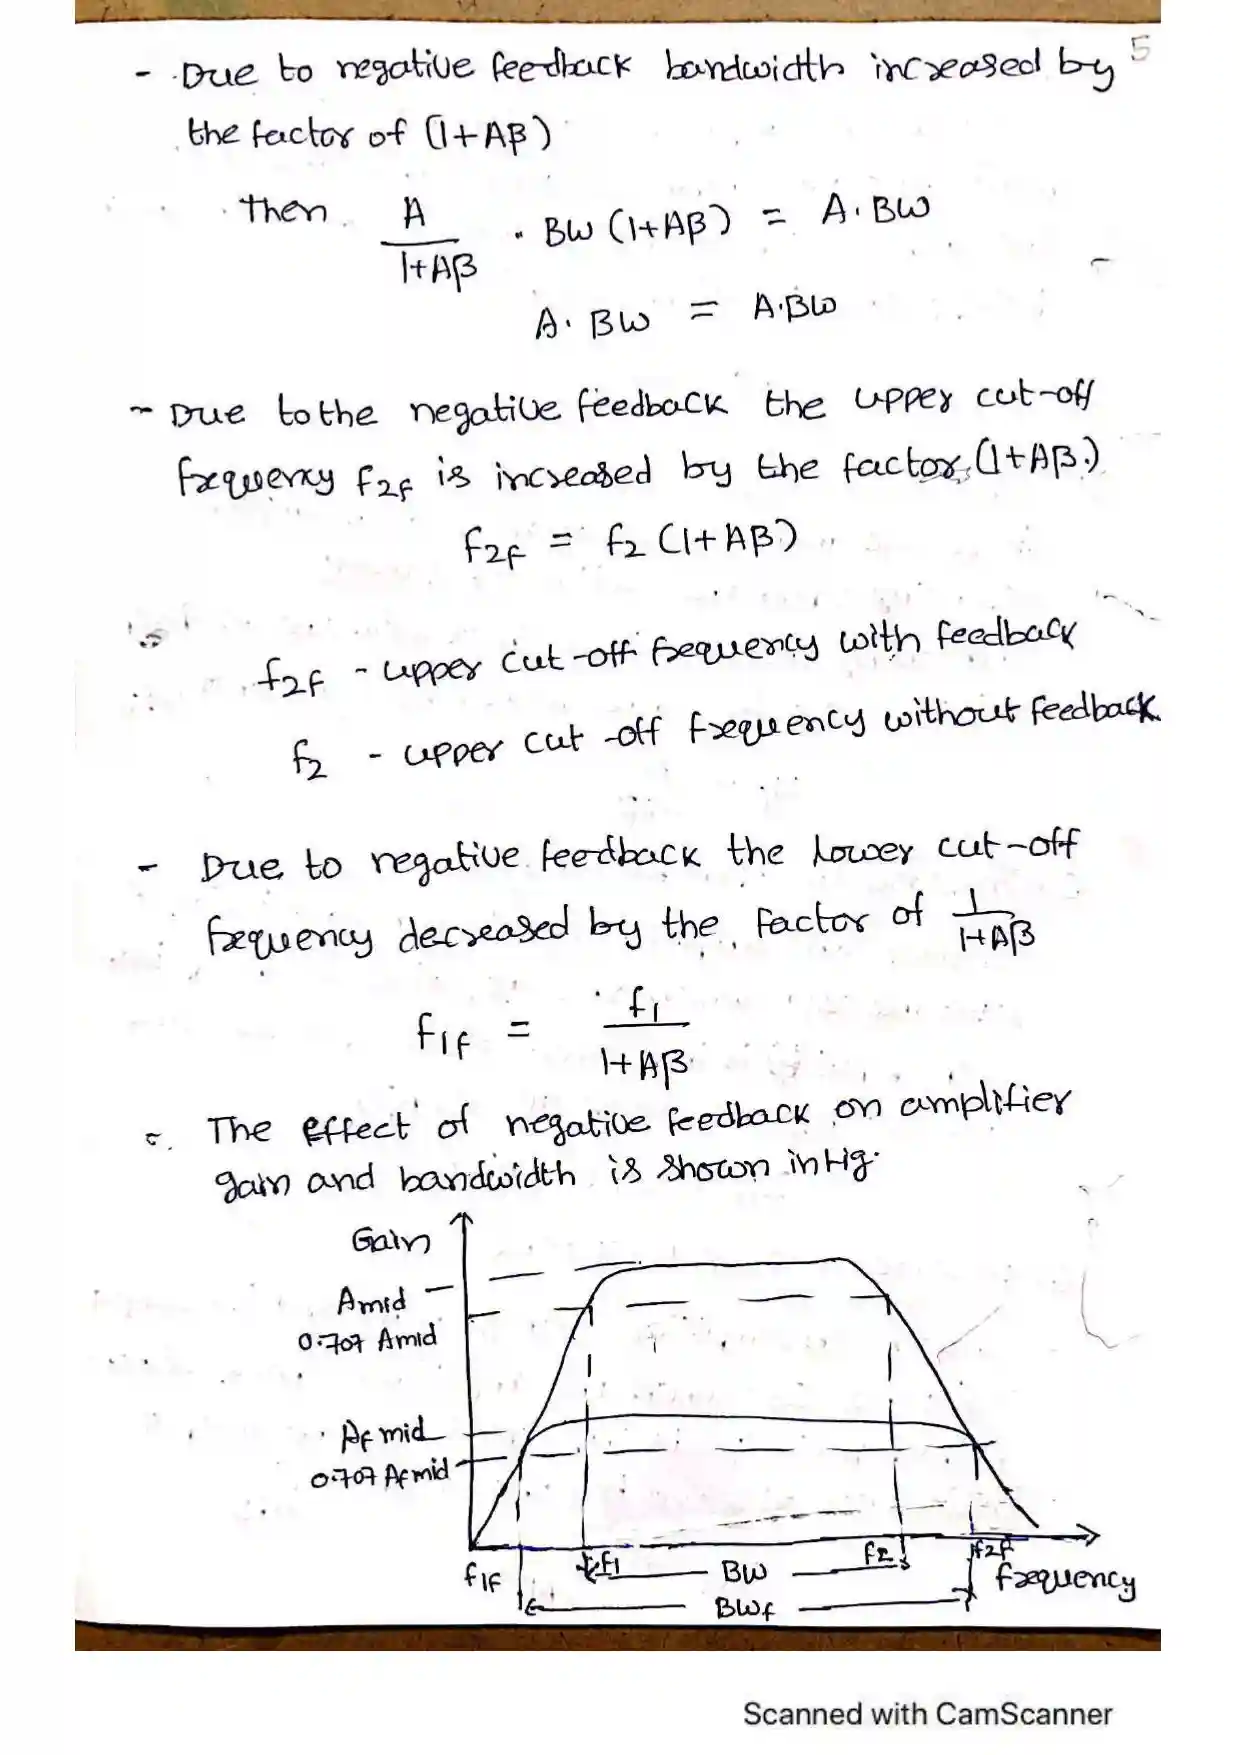 5
- Due to negative feedback bandwidth increased by
the factor of (1+Aβ)
Then A/(1+Aβ) . BW (1+Aβ) = A. BW
A. BW = A.BW
- Due to the negative feedback the upper cut-off
frequency f2f is increased by the factor, (1+Aβ.)
f2f = f2 (1+Aβ)
f2f - upper cut-off frequency with feedback
f2 - upper cut-off frequency without feedback
- Due to negative feedback the lower cut-off
frequency decreased by the factor of 1/(1+Aβ)
f1f = f1/(1+Aβ)
The effect of negative feedback on amplifier
gain and bandwidth is shown in fig.
Gain
Amid
0.707 Amid
Af mid
0.707 Af mid
f1f f1 BW f2 f2f frequency
BWf
Scanned with CamScanner